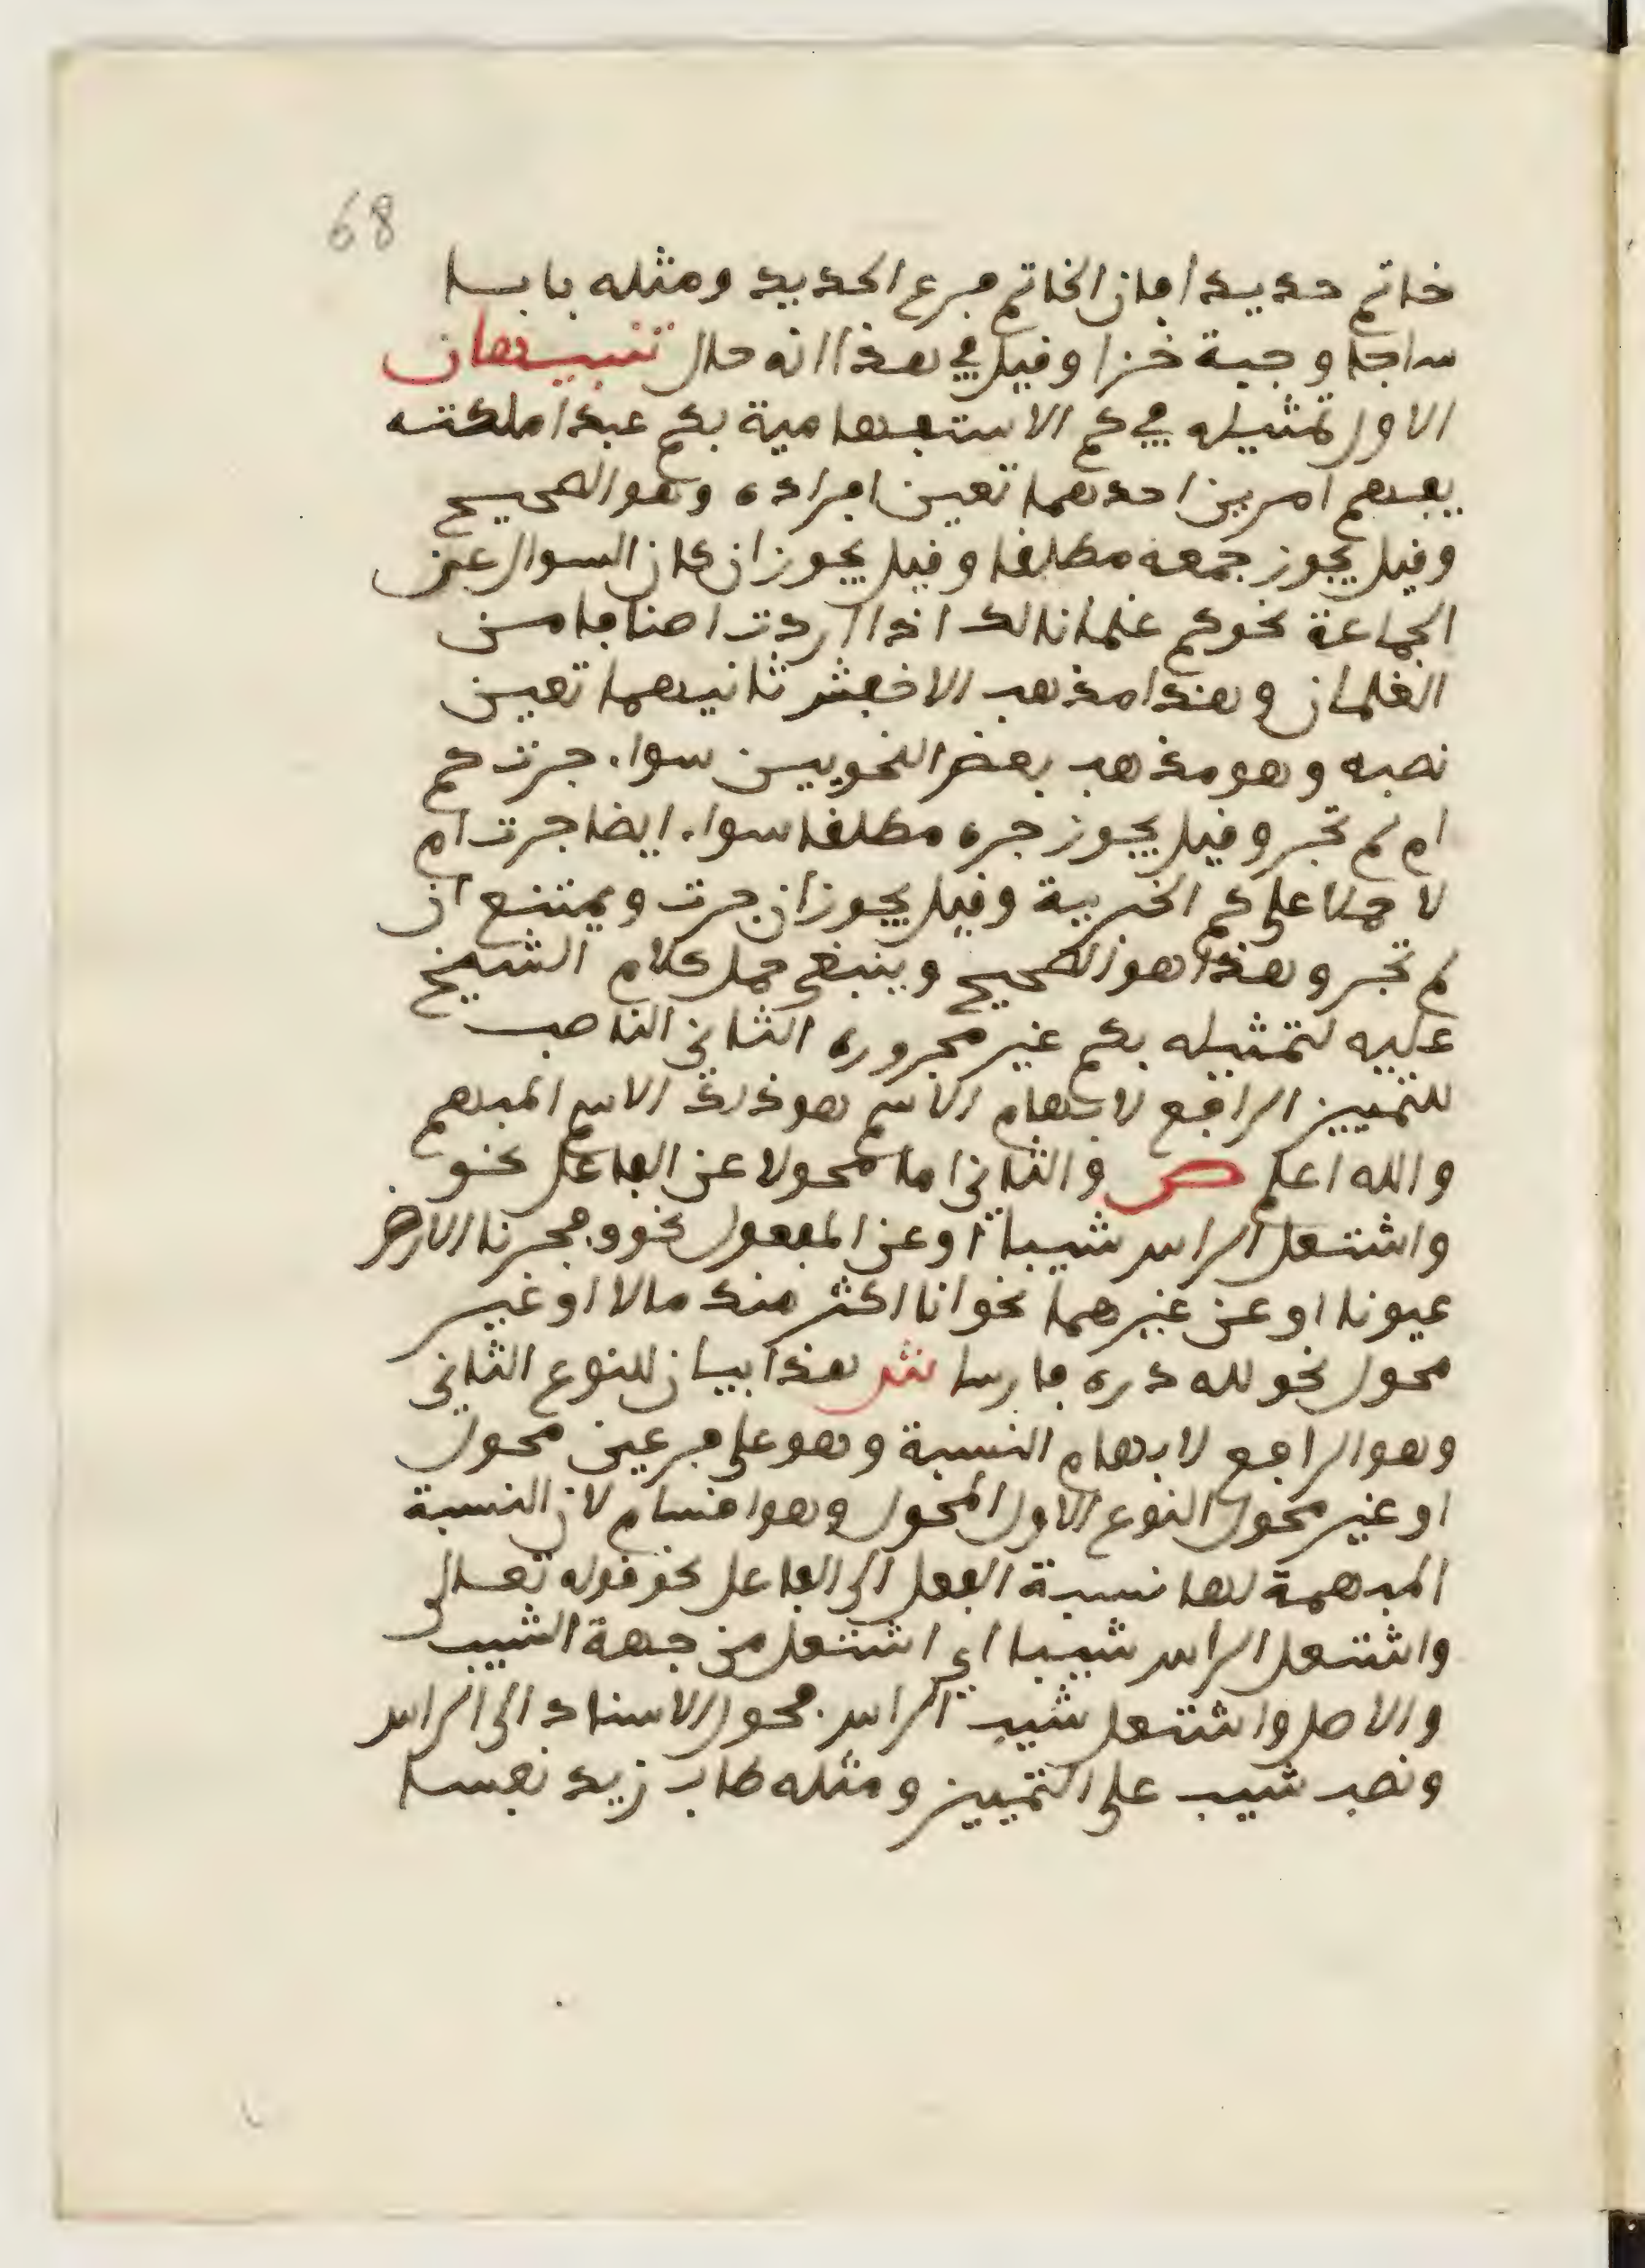 68
خاتم حديدا فان الخاتم فرع الحديد ومثله بابا
ساجا وجبة خزا وقيل في هذا انه حال تنبيهان
الاول تمثيله في كم الاستفهامية بكم عبدا ملكته
يفهم امرين احدهما تعين افراده وهو الصحيح
وقيل يجوز جمعه مطلقا وقيل يجوز ان كان السوال عن
الجماعة نحو كم غلمانا لك اذا اردت اصنافا من
الغلمان وهذا مذهب الاخفش ثانيهما تعين
نصبه وهو مذهب بعض النحويين سواء جرت كم
ام لم تجر وقيل يجوز جره مطلقا سواء ايضا جرت ام
لا حملا على كم الخبرية وقيل يجوز ان جرت ويمتنع ان
لم تجر وهذا هو الصحيح وينبغي حمل كلام الشيخ
عليه لتمثيله بكم غير مجروره الثاني الناصب
للتمييز الرافع لابهام الاسم هو ذلك الاسم المبهم
والله اعلم ص والثاني اما محولا عن الفاعل نحو
واشتعل الراس شيبا او عن المفعول نحو وفجرنا الارض
عيونا او عن غيرهما نحو انا اكثر منك مالا او غير
محول نحو لله دره فارسا ش هذا بيان للنوع الثاني
وهو الرافع لابهام النسبة وهو على فرعين محول
او غير محول النوع الاول المحول وهو اقسام لان النسبة
المبهمة لها نسبة الفعل الى الفاعل نحو قوله تعالى
واشتعل الراس شيبا اي اشتعل من جهة الشيب
والاصل واشتعل شيب الراس فحول الاسناد الى الراس
ونصب شيب على التمييز ومثله طاب زيد نفسا